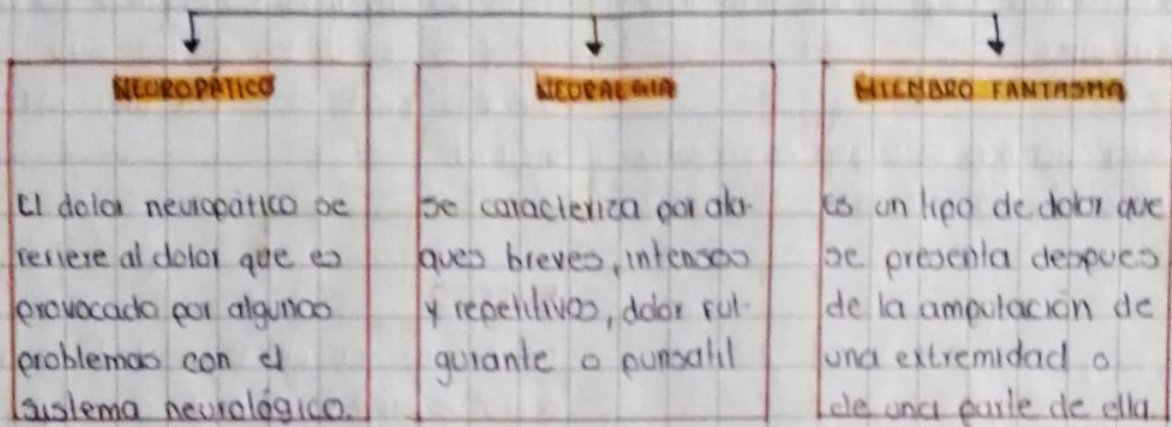 NEUROPÁTICO
El dolor neuropático se
refiere al dolor que es
provocado por algunos
problemas con el
sistema neurológico.
NEURALGIA
Se caracteriza por ata-
ques breves, intensos
y repetitivos, dolor ful-
gurante o punsatil
MIEMBRO FANTASMA
Es un tipo de dolor que
se presenta despues
de la amputación de
una extremidad o
de una parte de ella.